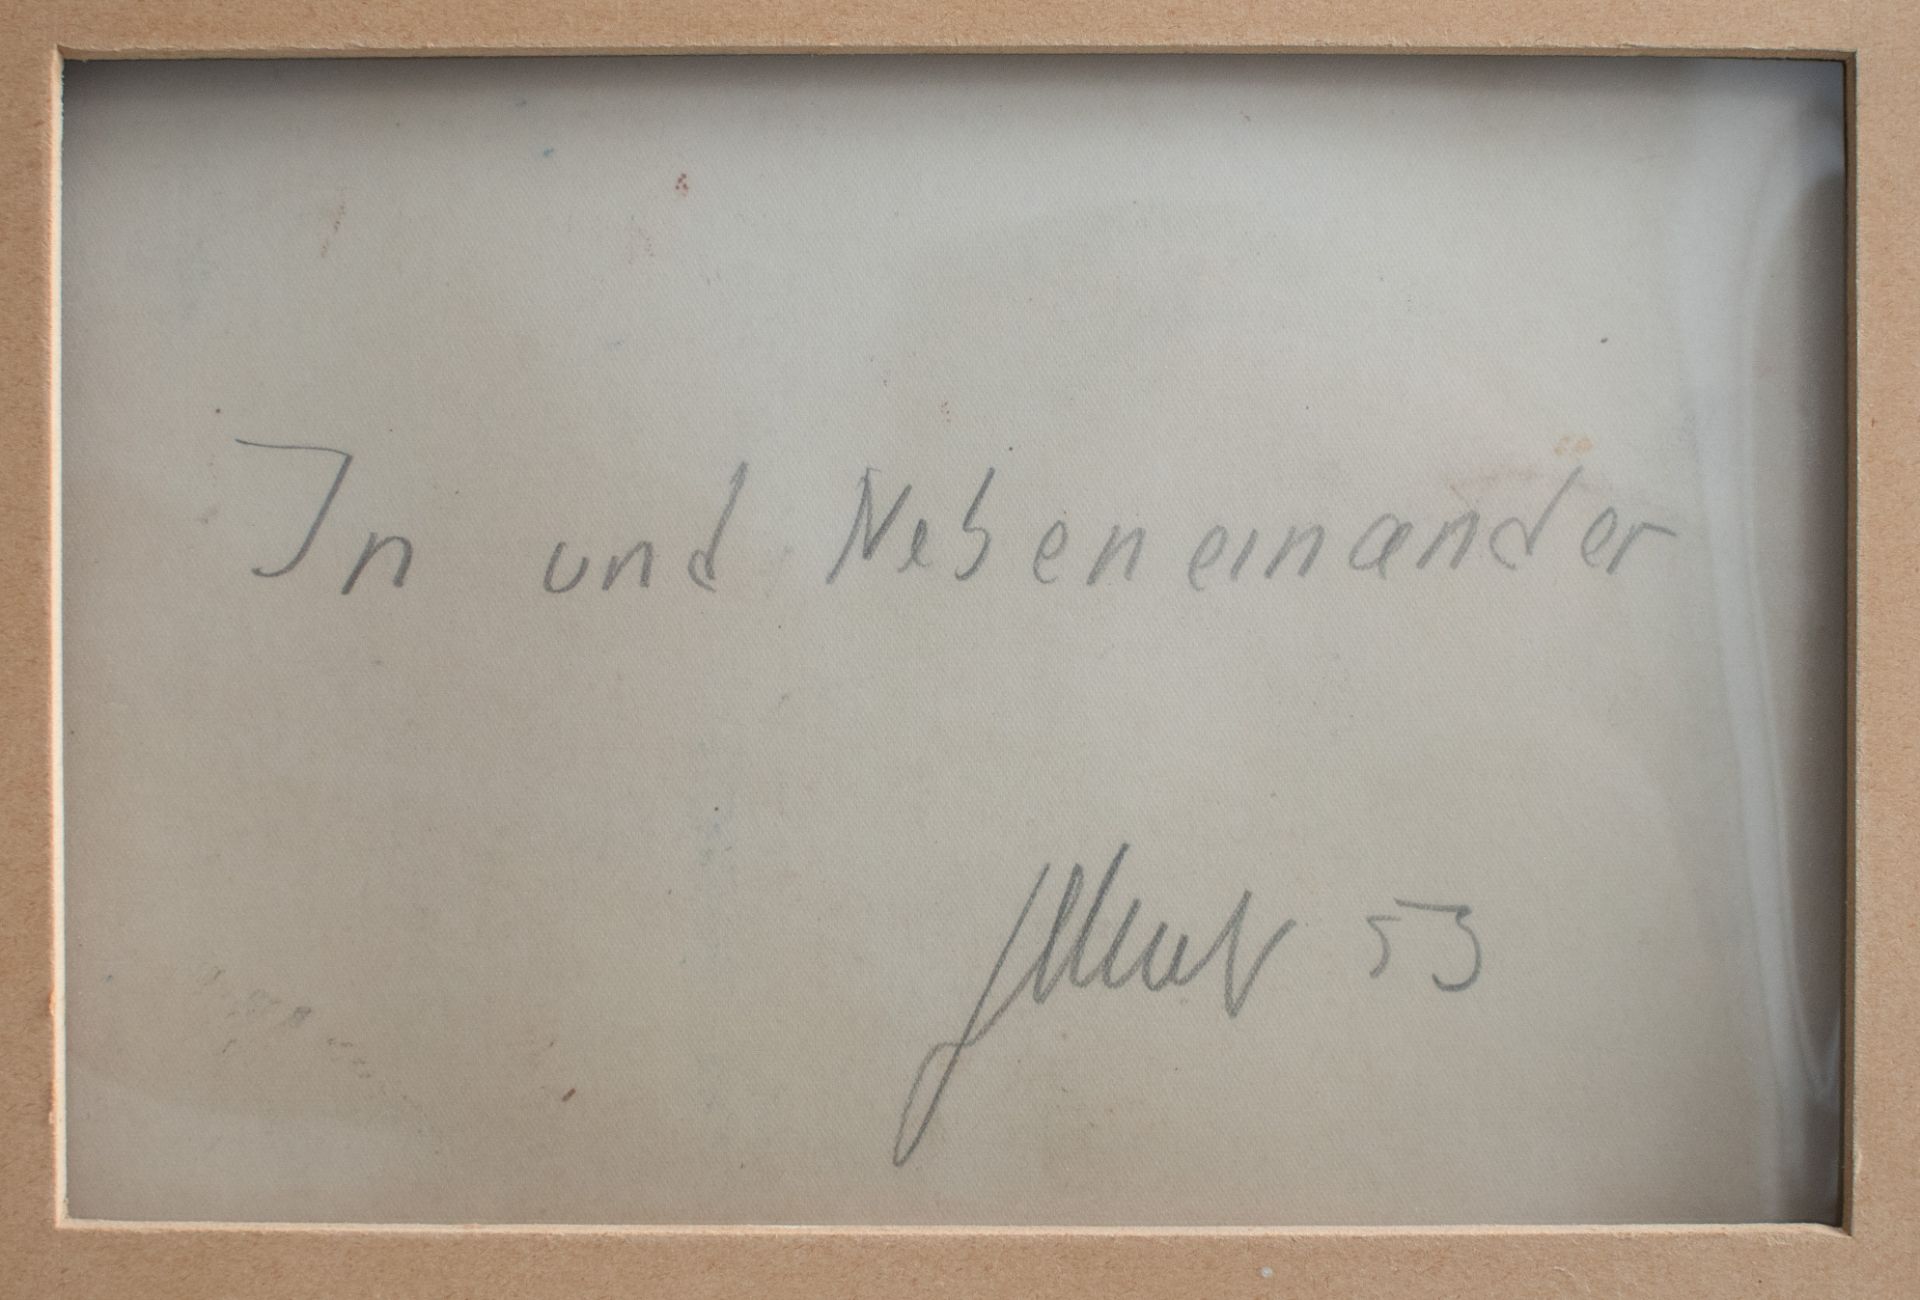 In und Nebeneinander
53